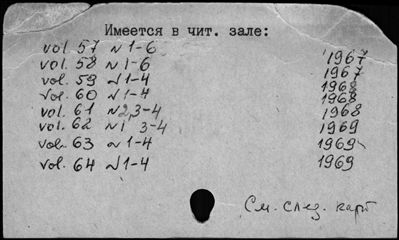 Имеется в чит. зале:
vol. 57 N 1-6 1967
vol. 58 N 1-6 1967
vol. 59 N 1-4 1968
vol. 60 N 1-4 1968
vol. 61 N 2,3-4 1968
vol. 62 N 1 3-4 1969
vol. 63 N 1-4 1969
vol. 64 N 1-4 1969
См. след. карт